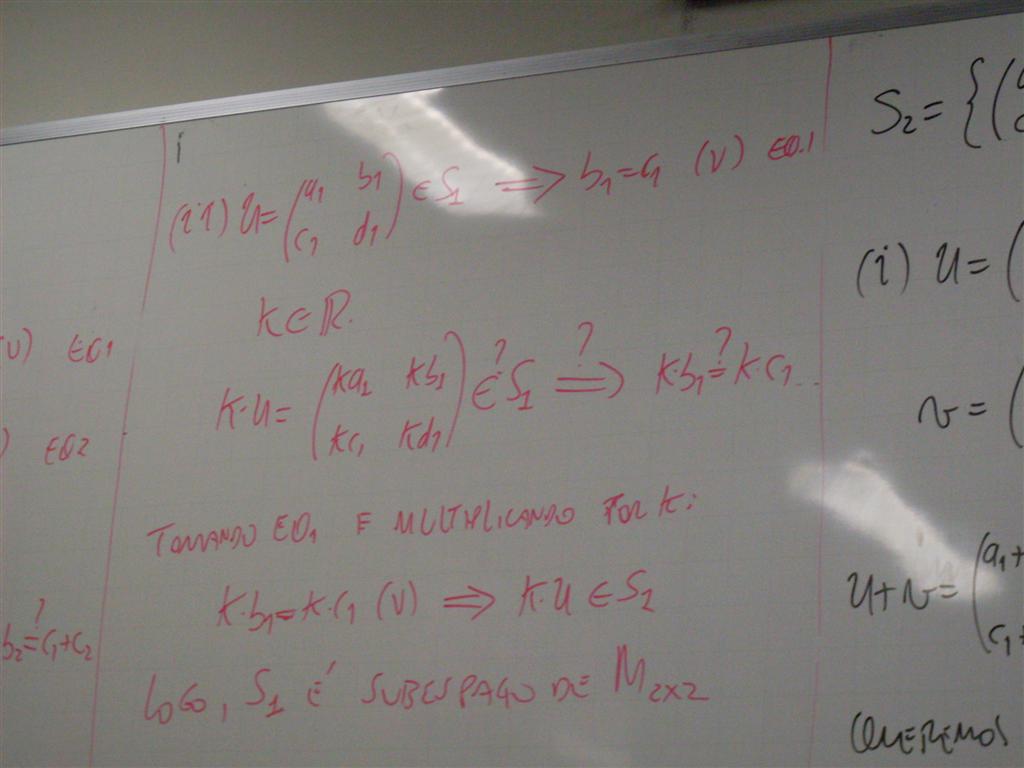 U) EQ1
) EQ2
?
b₂=c₁+c₂
(ii) U=(a₁ b₁
c₁ d₁) ∈ S₁ ⟹ b₁=c₁ (V) EQ.1
K∈ℝ.
K·U=(Ka₁ Kb₁
Kc₁ Kd₁) ∈? S₁ ?⟹ K·b₁=?K·c₁..
TOMANDO EQ₁ E MULTIPLICANDO POR K:
K·b₁=K·c₁ (V) ⟹ K·U ∈ S₂
LOGO, S₁ É SUBESPAÇO DE M₂ₓ₂
S₂={(
(i) U=(
v=(
U+v=(a₁+
c₁+
QUEREMOS